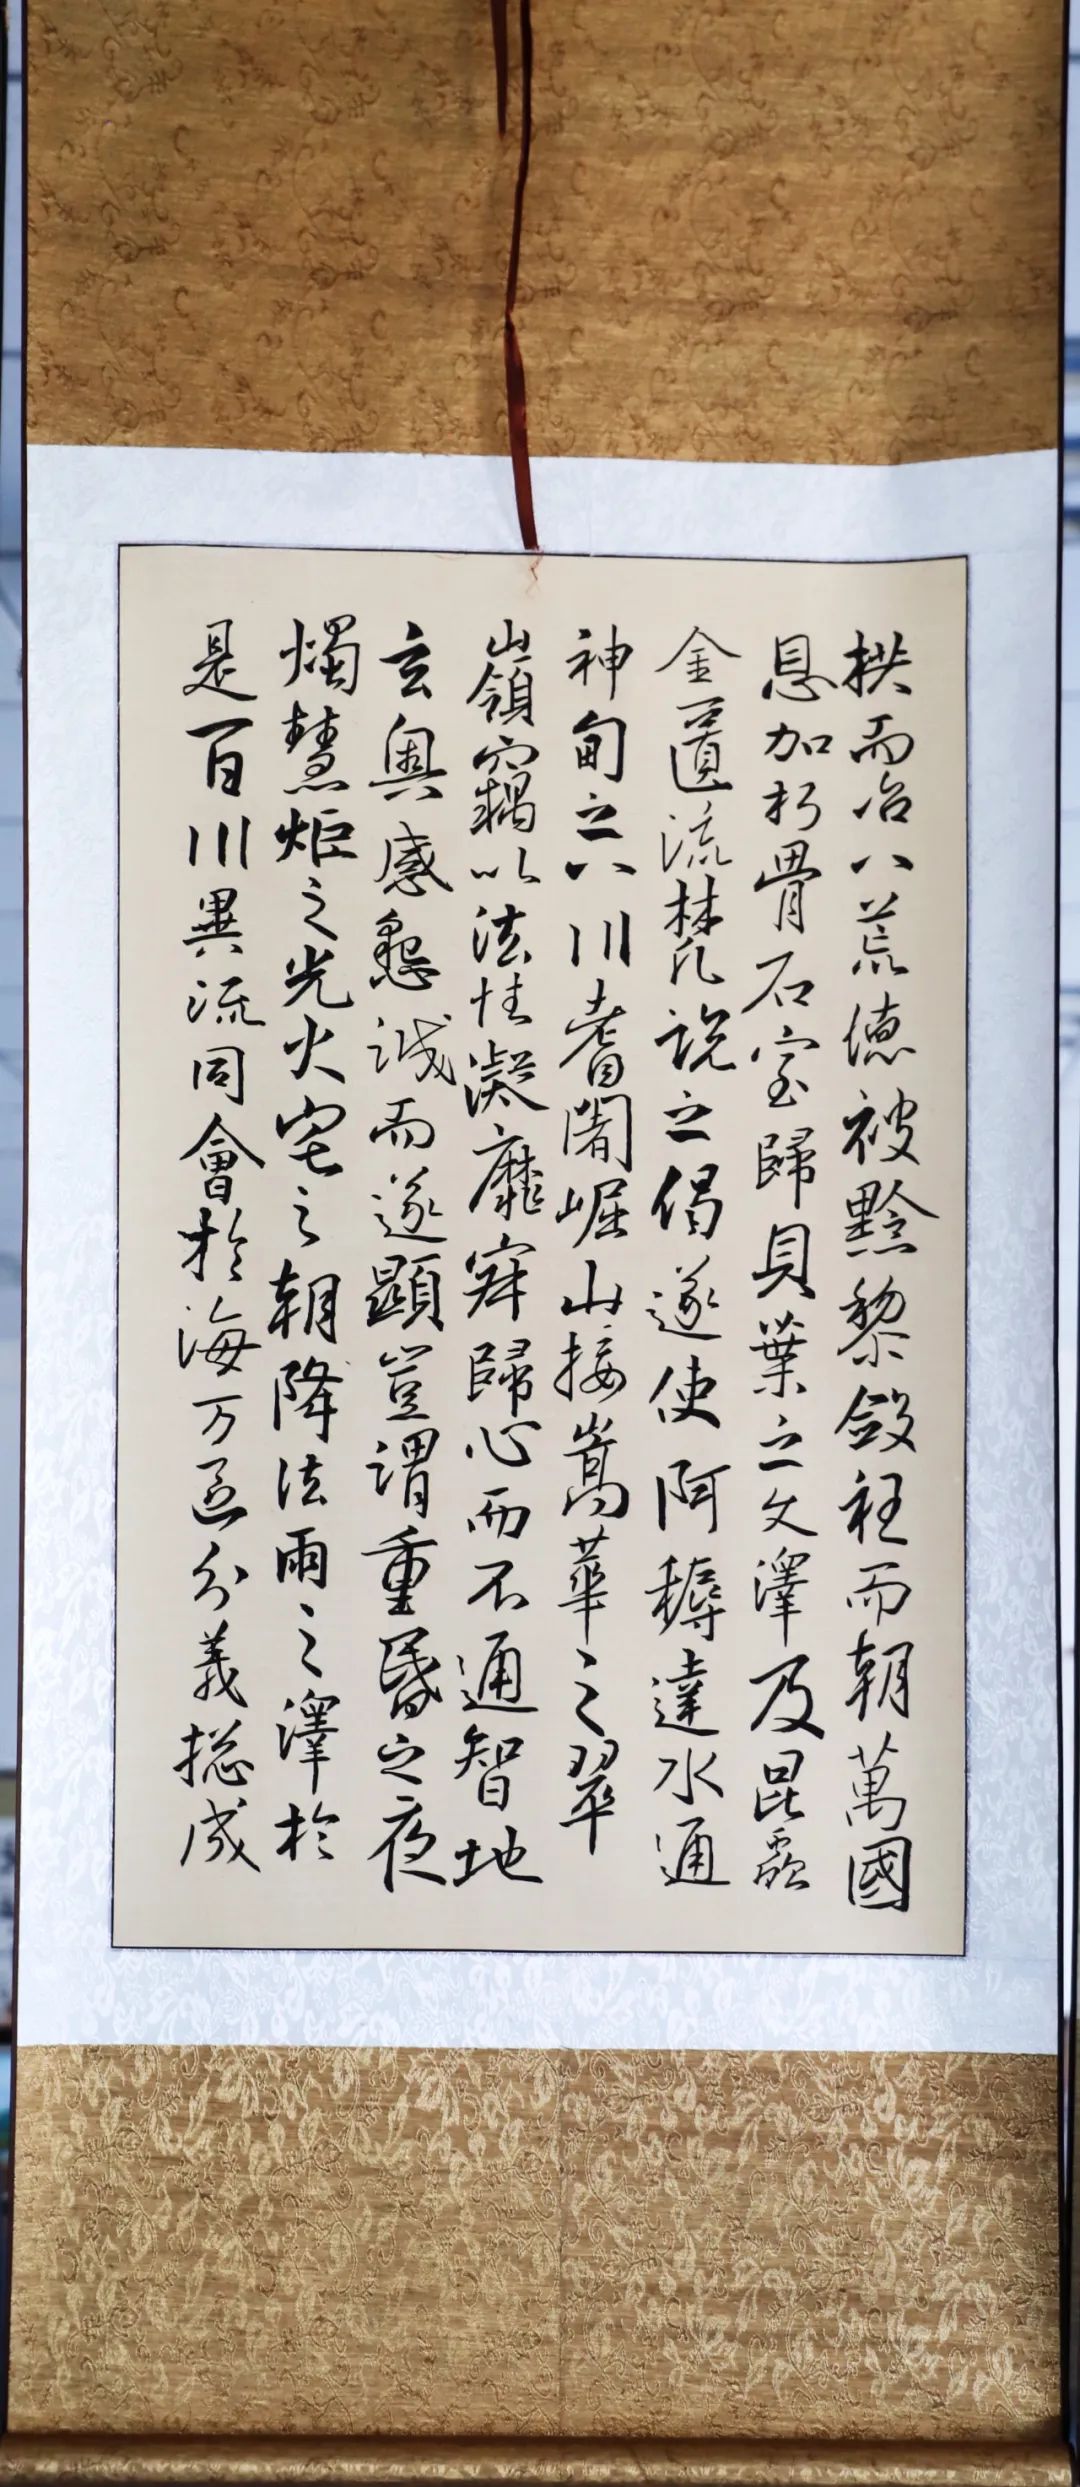 拱而治八荒德被黔黎斂衽而朝萬國
恩加朽骨石室歸貝葉之文澤及昆蟲
金匱流梵說之偈遂使阿耨達水通
神甸之八川耆闍崛山接嵩華之翠
嶺竊以法性凝靡寂歸心而不通智地
玄奧感懇誠而遂顯豈謂重昏之夜
燭慧炬之光火宅之朝降法雨之澤於
是百川異流同會於海万區分義揔成